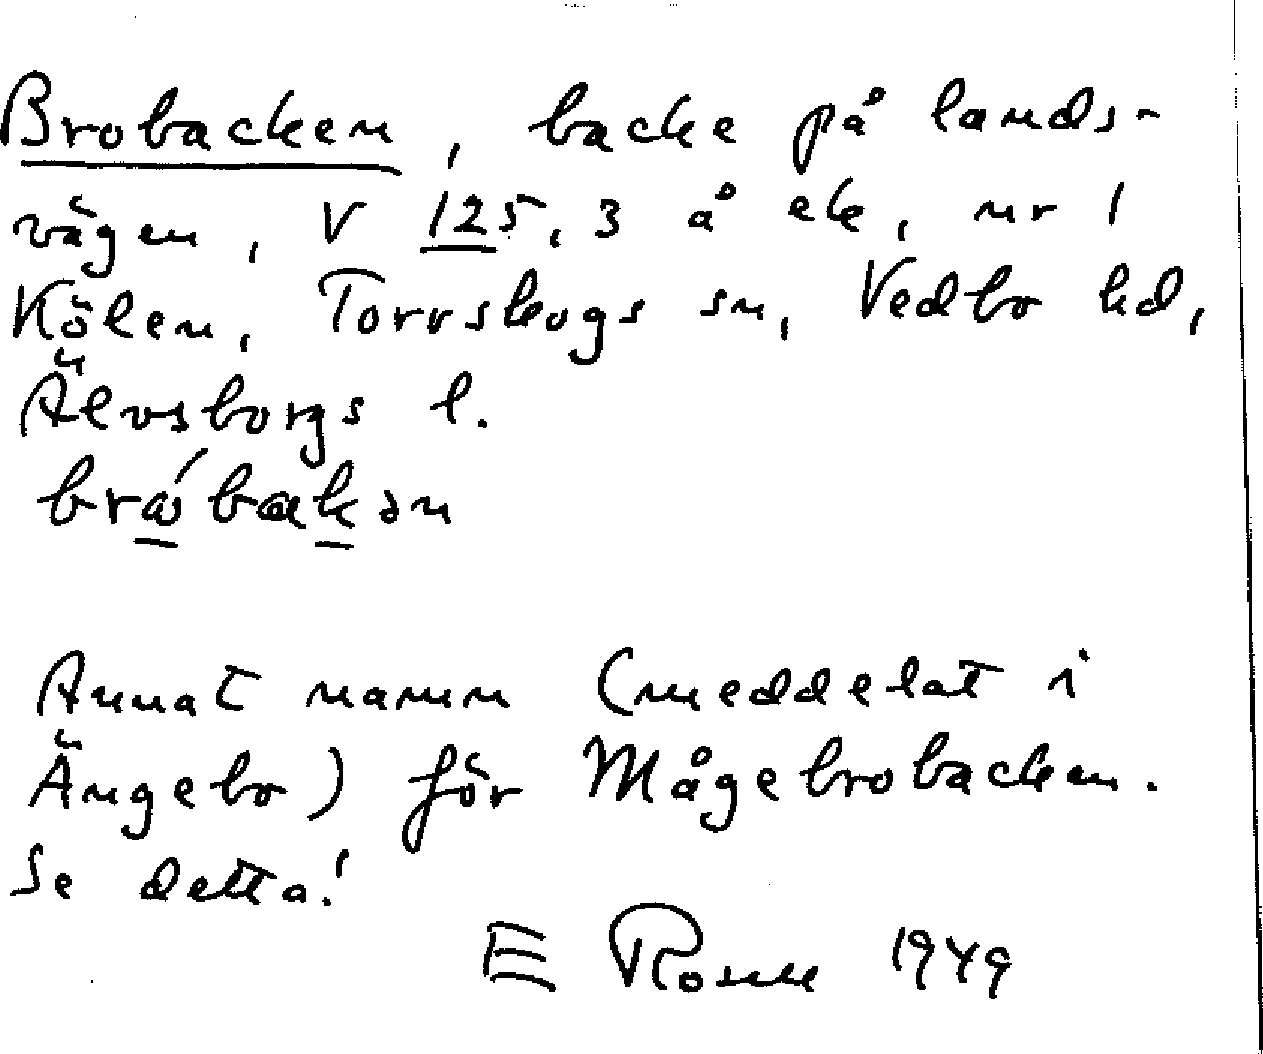 Brobacken, backe på lands-
vägen, V 125, 3 å ek, nr 1
Kölen, Torrskogs sn, Vedbo hd,
Älvsborgs l.
bra̱´baḵən
Annat namn (meddelat i
Ängebo) för Mågebrobacken.
Se detta!
E Rosell 1949